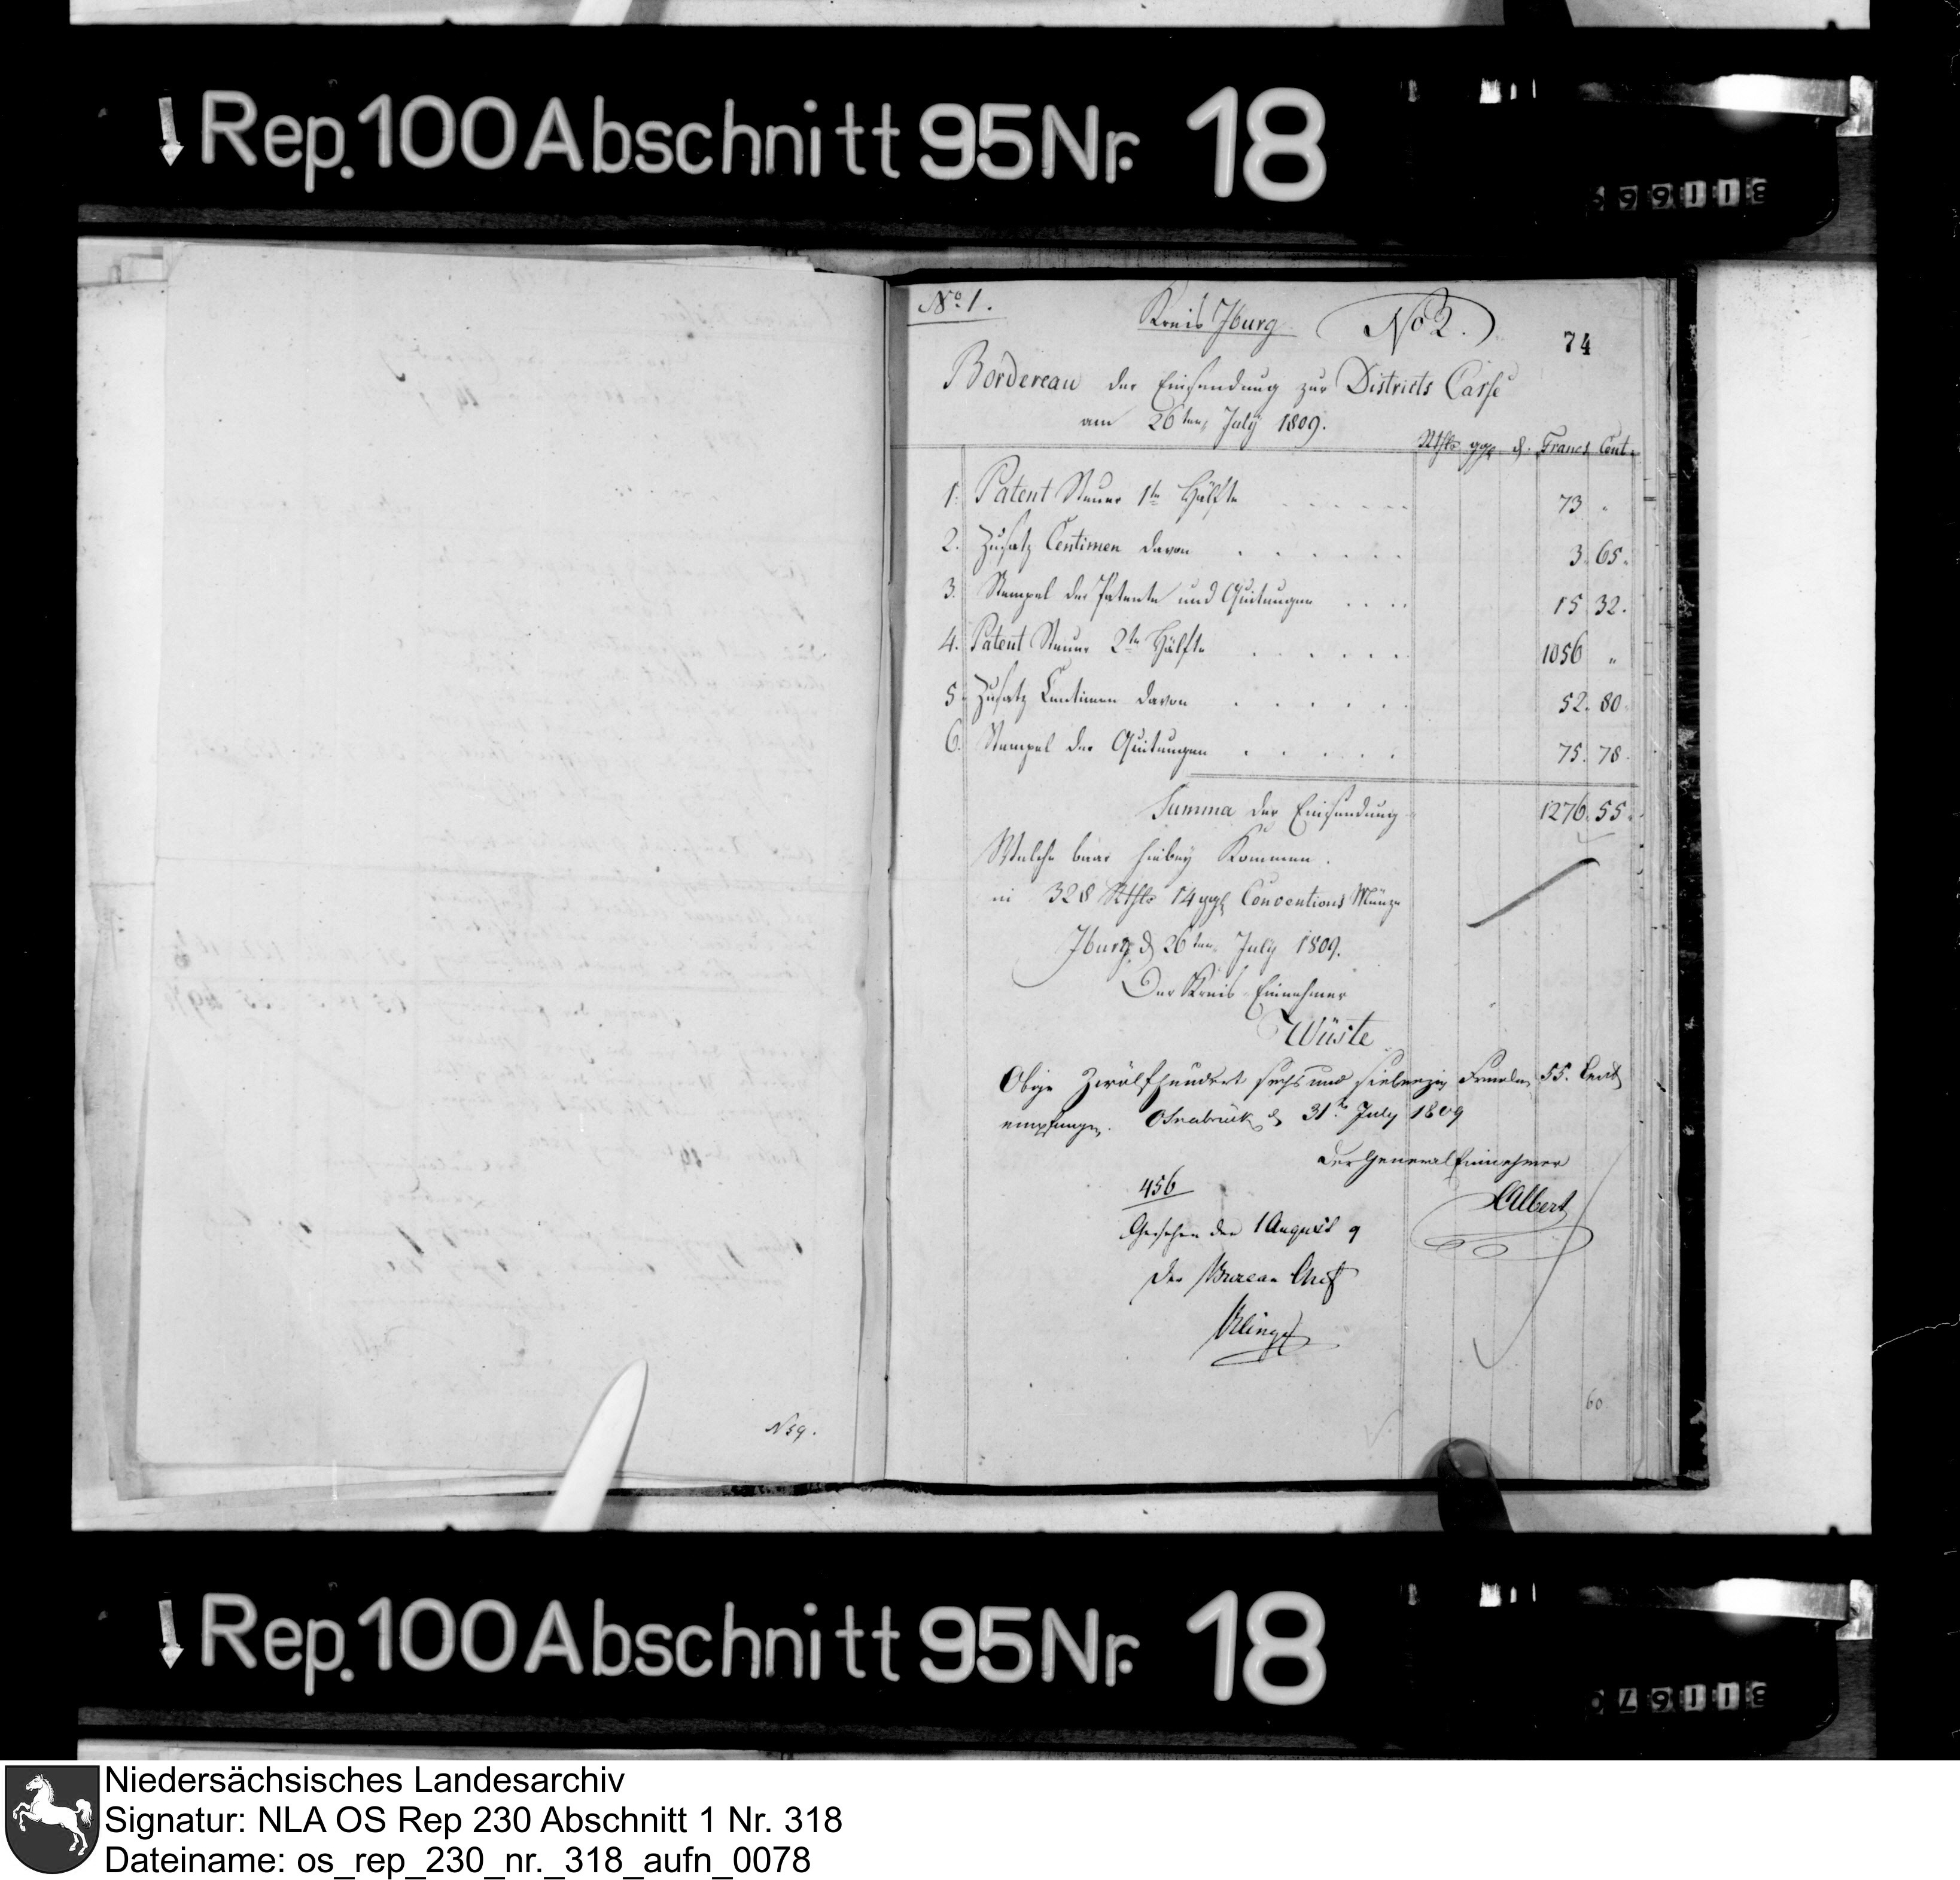 Rep. 100 Abschnitt 95 Nr. 18
No. 1.
Kreis Iburg
No 2.
74
Bordereau der Einsendung zur Districts Casse
am 26ten July 1809.
Rthlr ggr d. Francs Cent.
1. Patent Steuer 1te Hälfte 73 "
2. Zusatz Centimen davon 3. 65.
3. Stempel der Patente und Quitungen 15 32.
4. Patent Steuer 2te Hälfte 1056 "
5. Zusatz Centimen davon 52. 80.
6. Stempel der Quitungen 75. 78.
Summa der Einsendung 1276. 55.
Welche baar hiebey kommen.
in 328 Rthlr 14 ggr Conventions Münze
Iburg d 26ten July 1809.
Der Kreis Einnehmer
Wüste
Obige Zwölfhundert sechs und siebenzig Franken 55. Cent
empfangen. Osnabrück d 31ten July 1809
Der General Einnehmer
Albert
456
Gesehen den 1 August 9
Der Bureau Chef
60
N 59.
Rep. 100 Abschnitt 95 Nr. 18
Niedersächsisches Landesarchiv
Signatur: NLA OS Rep 230 Abschnitt 1 Nr. 318
Dateiname: os_rep_230_nr._318_aufn_0078